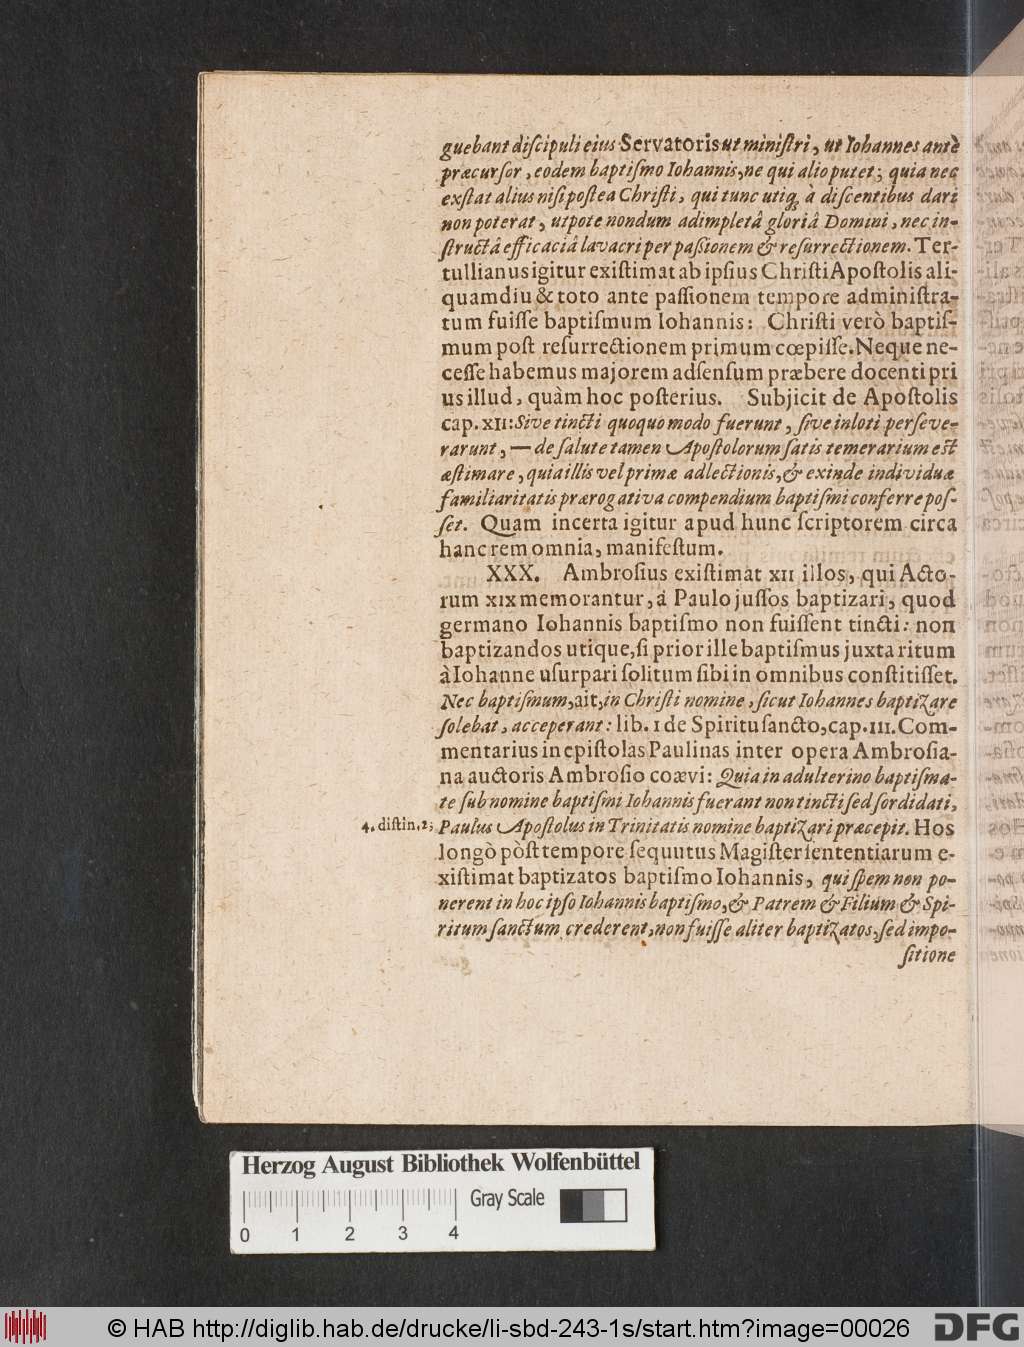 guebant diſcipuli eius Servatoris ut miniſtri, ut Iohannes antè
præcurſor, eodem baptiſmo Iohannis, ne qui alio putet; quia nec
exſtat alius niſi poſtea Chriſti, qui tunc utiq; à diſcentibus dari
non poterat, utpote nondum adimpletâ gloriâ Domini, nec in-
ſtructâ efficaciâ lavacri per paſsionem & reſurrectionem. Ter-
tullianus igitur exiſtimat ab ipſius Chriſti Apoſtolis ali-
quamdiu & toto ante paſſionem tempore adminiſtra-
tum fuiſſe baptiſmum Iohannis: Chriſti verò baptiſ-
mum poſt reſurrectionem primum cœpiſſe. Neque ne-
ceſſe habemus majorem adſenſum præbere docenti pri
us illud, quàm hoc poſterius. Subjicit de Apoſtolis
cap. XII: Sive tincti quoquo modo fuerunt, ſive inloti perſeve-
rarunt, — de ſalute tamen Apoſtolorum ſatis temerarium eſt
æſtimare, quia illis vel primæ adlectionis, & exinde individuæ
familiaritatis prærogativa compendium baptiſmi conferre poſ-
ſet. Quam incerta igitur apud hunc ſcriptorem circa
hanc rem omnia, manifeſtum.
XXX. Ambroſius exiſtimat XII illos, qui Acto-
rum XIX memorantur, à Paulo juſſos baptizari, quod
germano Iohannis baptiſmo non fuiſſent tincti: non
baptizandos utique, ſi prior ille baptiſmus juxta ritum
à Iohanne uſurpari ſolitum ſibi in omnibus conſtitiſſet.
Nec baptiſmum, ait, in Chriſti nomine, ſicut Iohannes baptizare
ſolebat, acceperant: lib. I de Spiritu ſancto, cap. III. Com-
mentarius in epiſtolas Paulinas inter opera Ambroſia-
na auctoris Ambroſio coævi: Quia in adulterino baptiſma-
te ſub nomine baptiſmi Iohannis fuerant non tincti ſed ſordidati,
4. diſtin. 2; Paulus Apoſtolus in Trinitatis nomine baptizari præcepit. Hos
longò pòſt tempore ſequutus Magiſter ſententiarum e-
xiſtimat baptizatos baptiſmo Iohannis, qui ſpem non po-
nerent in hoc ipſo Iohannis baptiſmo, & Patrem & Filium & Spi-
ritum ſanctum crederent, non fuiſſe aliter baptizatos, ſed impo-
ſitione
Herzog August Bibliothek Wolfenbüttel
Gray Scale
0 1 2 3 4
© HAB http://diglib.hab.de/drucke/li-sbd-243-1s/start.htm?image=00026
DFG